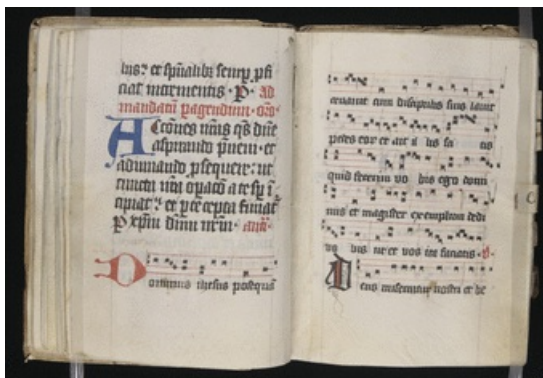 bus? et sp̄ualib; semp̲ p̲fi
ciat incrementis · P̲ · Ad
mandatū p̲agendum · or̄o·
Actiones nr̄as qs̄ dn̄e
aspirando p̲ueni · et
adiuuando p̲sequere: ut
cuncta nr̄a op̲acō a te sp̲ i
cipiat? et p̲ te cepta finiat᷑
P̲ xp̄m dn̄m nr̄m · Antı̄·
Dominus ihesus postquā
cenauit cum discipulis suis lauit
pedes eor et ait il lis sci tis
quid fecerim vo bis ego domi
nus et magister exemplum dedi
vo bis ut et vos ita faciatis · v̄·
Deus misereatur nostri et be